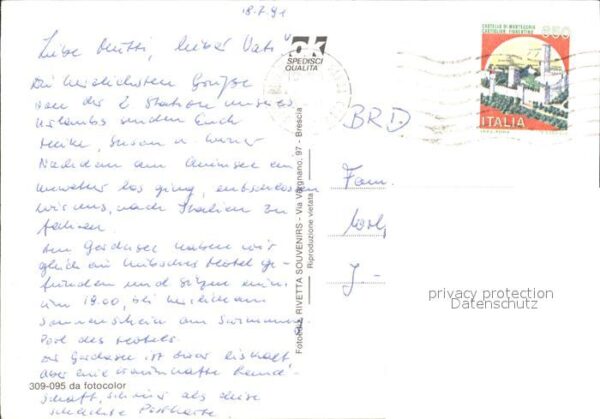 18.7.91
Liebe Mutti, lieber Vati!
Die herzlichsten Grüße
von der 2. Station unseres
Urlaubs senden Euch
Heike, Susan u. Werner
Nachdem am ein
Unwetter los ging, entschlossen
wir uns, nach Italien zu
fahren.
Am Gardasee haben wir
gleich ein hübsches Hotel ge-
funden und sitzen nun
um 18.00, bei herrlichem
Sonnenschein am Swimming-
Pool des Hotels.
Der Gardasee ist zwar eiskalt
aber eine traumhafte Land-
schaft, schöner als diese
schlechte Postkarte.
309-095 da fotocolor
ok
SPEDISCI
QUALITA
Fotoediz. RIVETTA SOUVENIRS - Via Vargnano, 97 - Brescia
Riproduzione vietata
CASTELLO DI MONTECCHIO
CASTIGLION FIORENTINO
650
ITALIA
BRD
Fam.
J-
privacy protection
Datenschutz